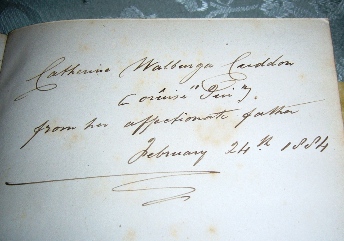 Catherine Walburga Cuddon
from her affectionate father
February 24th 1884